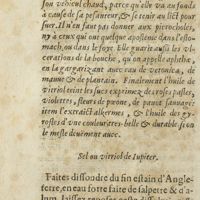 son vehicul chaud, parce qu'elle va au fonds
à cause de sa pesanteur, & se tenir au lict pour
suer. Il n'en faut pas donner aux picrocholes,
ny à ceux qui ont quelque aposteme dans l'esto-
mach, ou dans le foye. Elle guarit aussi les vl-
cerations de la bouche, qu'on appelle aphthe,
en la gargarizant avec eau de veronica, de
mauve & de plantain. Finalement l'huile de
vitriol teint les sucs exprimez des roses pasles,
violettes, fleurs de pivone, de pavot sauvage:
item l'extraict alkermes, & l'huile des gy-
rofles d'vne couleur tres-belle & durable si on
le mesle deuëment avec.
Sel ou vitriol de Iupiter.
Faites dissoudre du fin estain d'Angle-
terre, en eau forte faite de salpetre & d'a-
lum, laissez